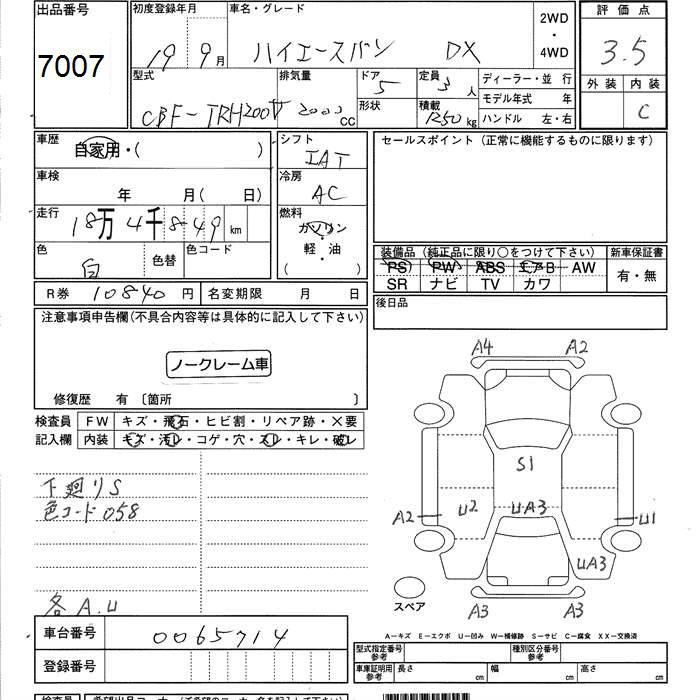 出品番号
7007
初度登録年月 車名・グレード
19 9月 ハイエースバン DX
2WD
・
4WD
評価点
3.5
外装 内装
C
型式 排気量 ドア 定員 ディーラー・並行
CBF-TRH200V 2000cc 5 3人
モデル年式 年
形状 積載 ハンドル 左・右
1250kg
車歴
自家用・( )
シフト
IAT
セールスポイント (正常に機能するものに限ります)
車検
年 月( 日)
冷房
AC
走行
18万4千849km
燃料
ガソリン
・
軽・油
( )
色 色替 色コード
白
装備品 (純正品に限り○をつけて下さい) 新車保証書
PS PW ABS エアB AW 有・無
SR ナビ TV カワ
R券 10840円 名変期限 月 日
後日品
注意事項申告欄(不具合内容等は具体的に記入して下さい)
ノークレーム車
修復歴 有 〔箇所 〕
検査員 FW キズ・飛石・ヒビ割・リペア跡・×要
記入欄 内装 キズ・汚レ・コゲ・穴・スレ・キレ・破レ
下廻りS
色コード058
各A.U
A4 A2
S1
U2 UA3
A2 U1
UA3
スペア
A3 A3
A-キズ E-エクボ U-凹み W-補修跡 S-サビ C-腐食 XX-交換済
車台番号 0065714
登録番号
型式指定番号
参考
種別区分番号
参考
車庫証明用
参考
長さ cm 幅 cm 高さ cm